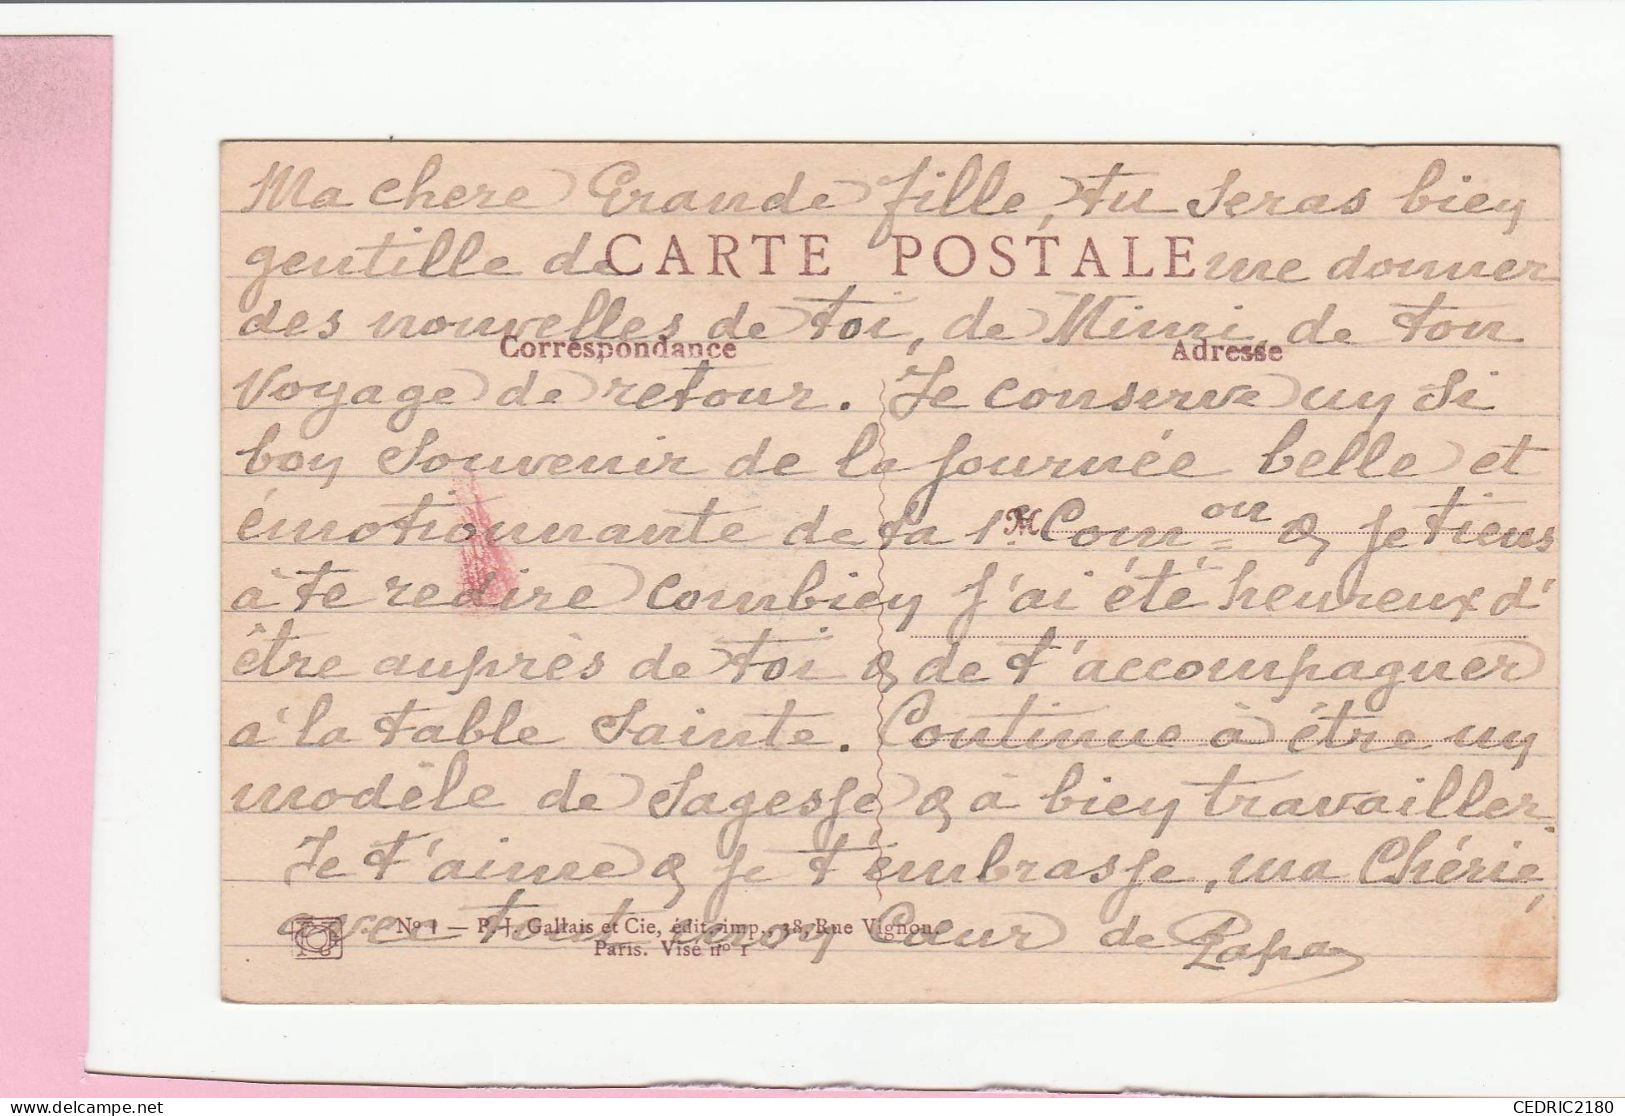 Ma chere Grande fille, tu seras bien
gentille de CARTE POSTALE me donner
des nouvelles de toi, de Mimi, de ton
Correspondance Adresse
voyage de retour. Je conserve un si
bon souvenir de la journée belle et
émotionnante de ta 1re Comon & je tiens
à te redire combien j'ai été heureux d'
être auprès de toi & de t'accompagner
à la table Sainte. Continue à être un
modèle de sagesse & à bien travailler.
Je t'aime & je t'embrasse, ma Chérie,
avec tout mon Cœur de Papa
No 1 — P.-J. Gallais et Cie, édit.-imp., 38, Rue Vignon,
Paris. Visé no 1
CEDRIC2180